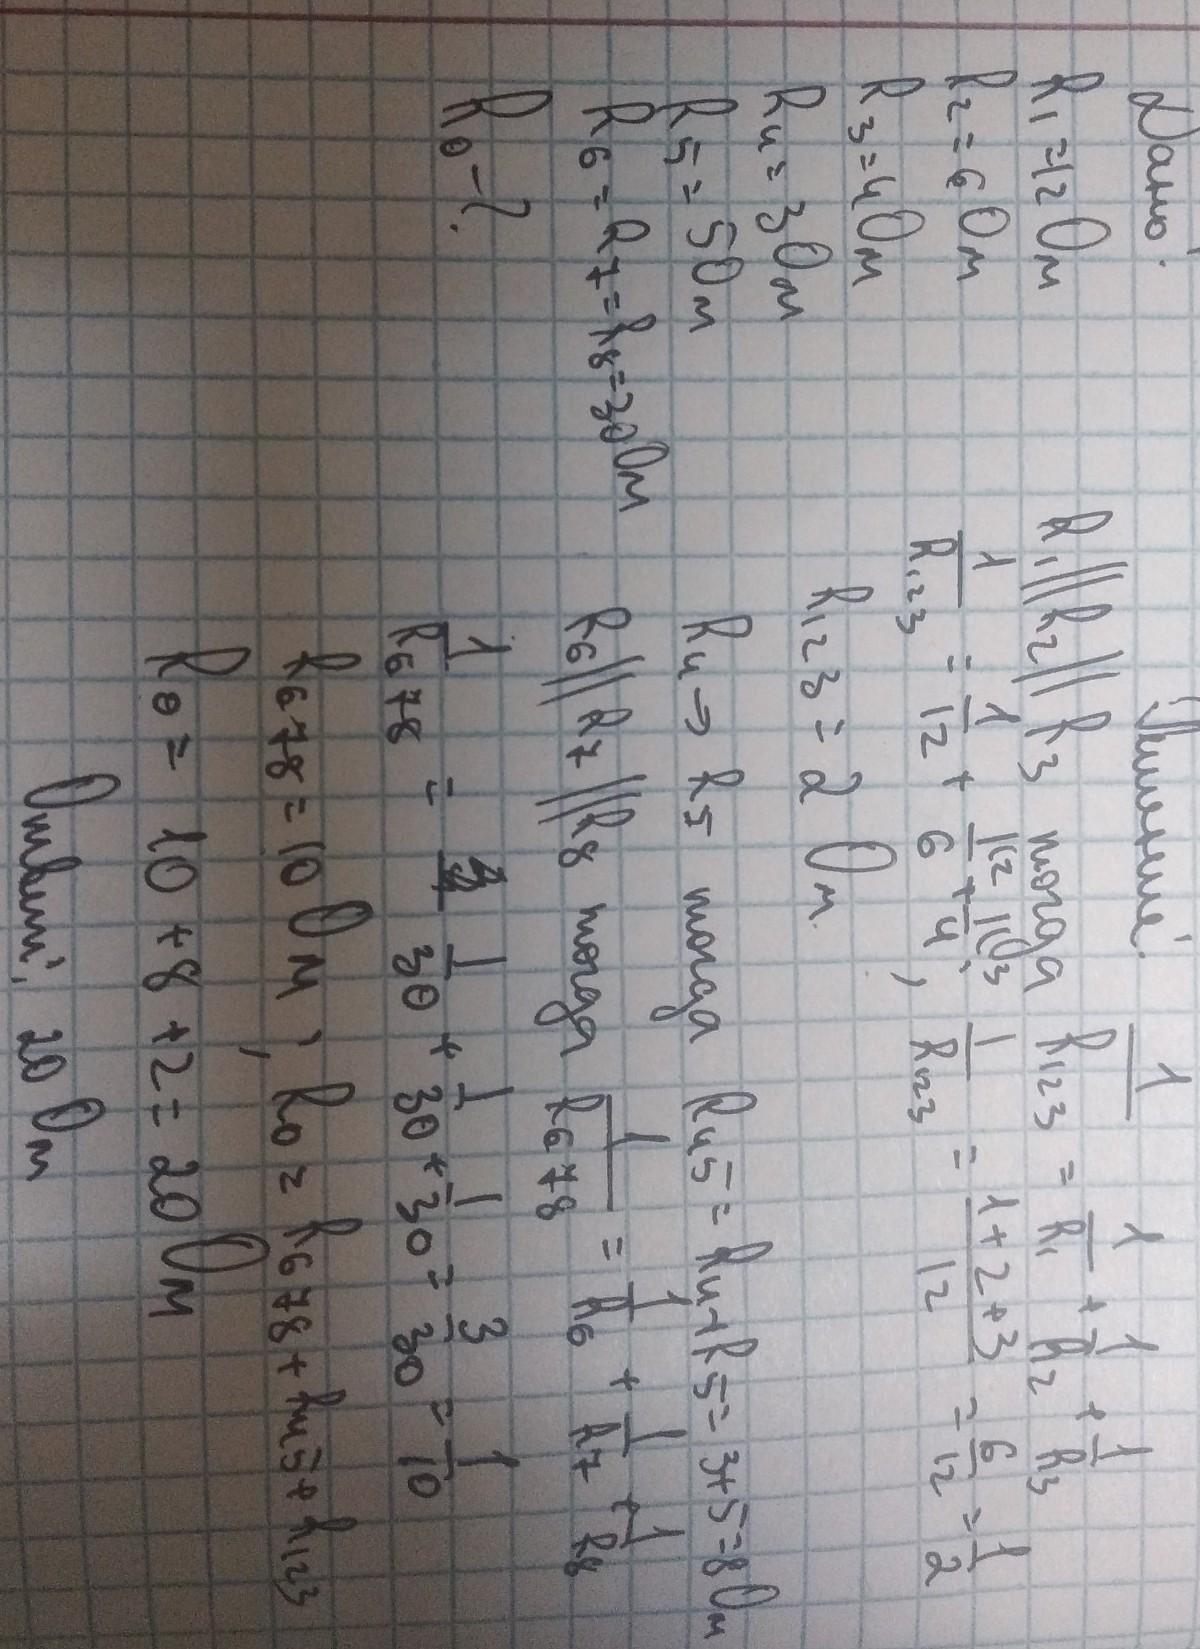 Дано:
R1=12 Ом
R2=6 Ом
R3=4 Ом
R4=3 Ом
R5=5 Ом
R6=R7=R8=30 Ом
R0-?
Решение:
R1||R2||R3 тогда 1/R123 = 1/R1 + 1/R2 + 1/R3
1/R123 = 1/12 + 1/6 + 1/4; 1/R123 = (1+2+3)/12 = 6/12 = 1/2
R123 = 2 Ом
R4 → R5 тогда R45 = R4+R5 = 3+5=8 Ом
R6||R7||R8 тогда 1/R678 = 1/R6 + 1/R7 + 1/R8
1/R678 = 1/30 + 1/30 + 1/30 = 3/30 = 1/10
R678 = 10 Ом; R0 = R678 + R45 + R123
R0 = 10 + 8 + 2 = 20 Ом
Ответ: 20 Ом